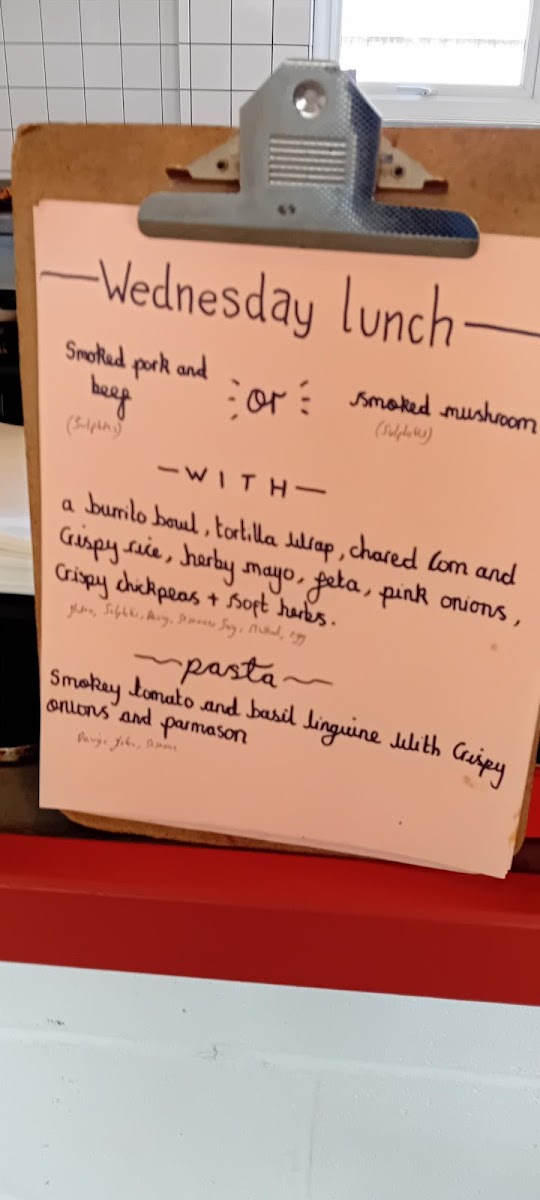 Wednesday lunch
Smoked pork and
beef
(Sulphites)
or
smoked mushroom
(Sulphites)
WITH
a burrito bowl, tortilla wrap, chared corn and
Crispy rice, herby mayo, feta, pink onions,
Crispy chickpeas + soft herbs.
gluten, Sulphites, Dairy, Sesame Soy, Mustard, egg
pasta
Smokey tomato and basil linguine with Crispy
onions and parmason
Dairy, gluten, Sesame